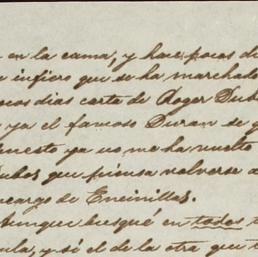 en la cama, y hace pocos di
infiero que se ha marchado
ocos dias carta de Roger Dub
ya el famoso Duran se q
nesto ya no me ha vuelto
ubos que piensa volverse a
ncargo de Encinillas.
Aunque busqué en todos t
ula, y si el de la otra que t